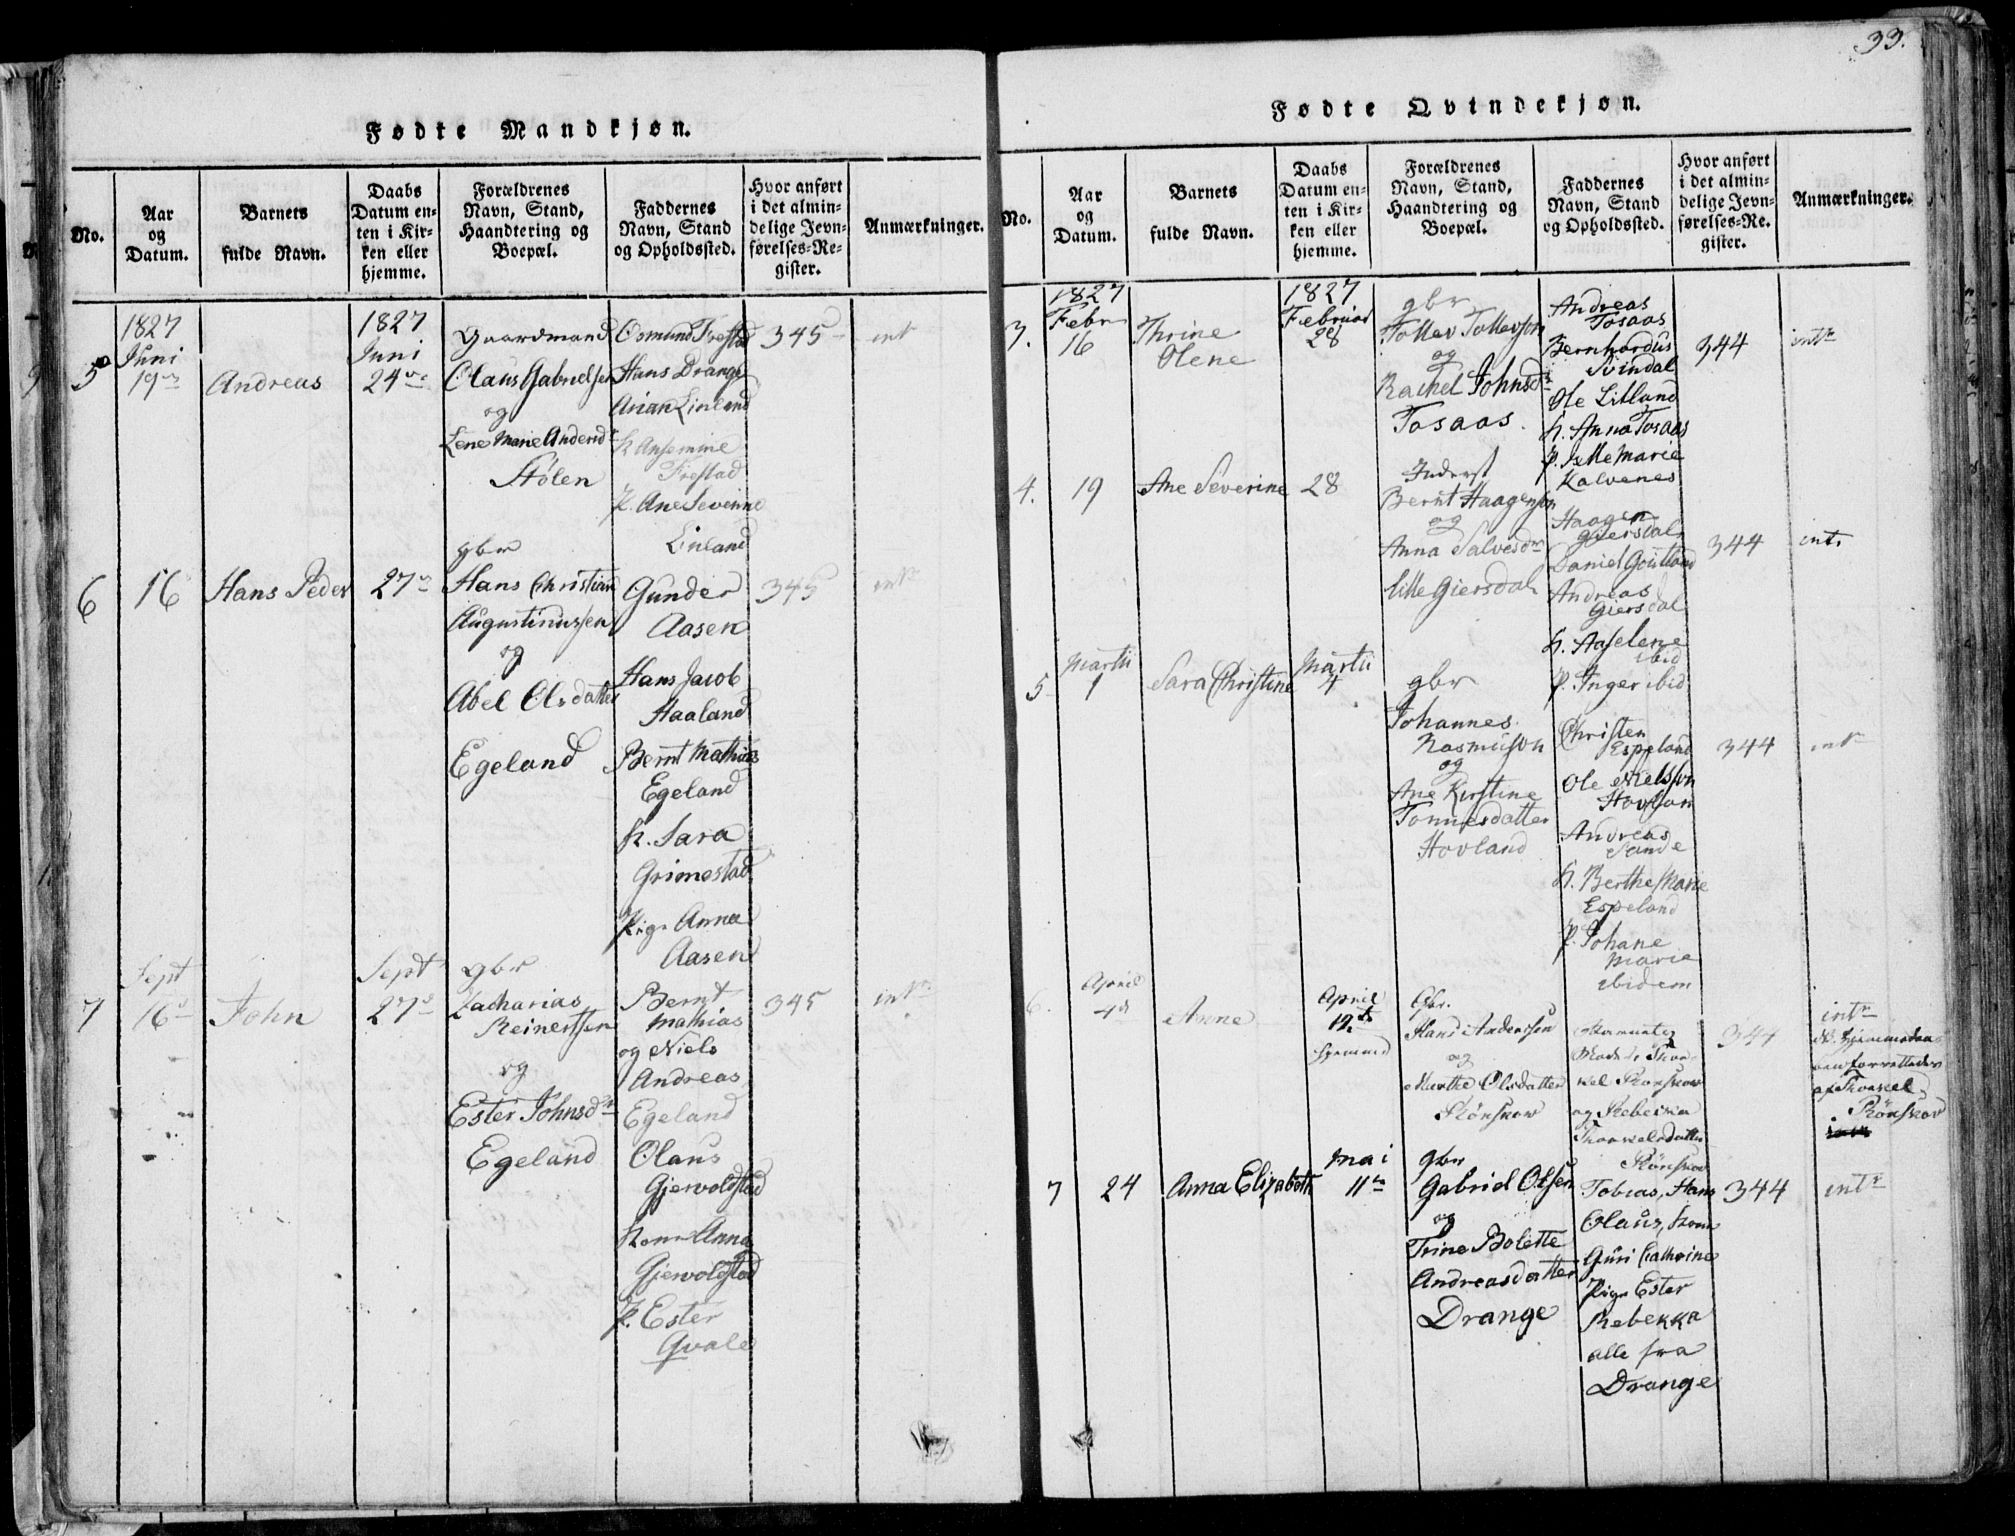 33.
Fødte Mandkjøn.
No.
Aar
og
Datum.
Barnets
fulde Navn.
Daabs
Datum en-
ten i Kir-
ken eller
hjemme.
Forældrenes
Navn, Stand,
Haandtering og
Boepæl.
Faddernes
Navn, Stand
og Opholdssted.
Hvor anført
i det almin-
delige Jevn-
førelses-Re-
gister.
Anmærkninger.
5
1827
Juni
19
Andreas
1827
Juni
24
Gaardmand
Olaus Gabrielsen
og
Lene Marie Andersd
Stølen
Osmund Frestad
Hans Drange
Arian Linland
K Ansemine
Frestad
P. Ane Severine
Linland
345
int
6
16
Hans Peder
27
gbr
Hans Christian
Augustinussen
og
Abel Olsdatter
Egeland
Gunder
Aasen
Hans Jacob
Haaland
Bernt Mathias
Egeland
K. Sara
Grimestad
Pige Anna
Aasen
345
int
7
Sept
16
John
Sept
27
gbr
Zacharias
Reinertsen
og
Ester Johnsd
Egeland
Bernt
Mathias
og Niels
Andreas
Egeland
Olaus
Gjervoldstad
Kone Anna
Gjervoldstad
P. Ester
Qvale
345
int
Fødte Qvindekjøn.
No.
Aar
og
Datum.
Barnets
fulde Navn.
Daabs
Datum en-
ten i Kir-
ken eller
hjemme.
Forældrenes
Navn, Stand,
Haandtering og
Boepæl.
Faddernes
Navn, Stand
og Opholdssted.
Hvor anført
i det almin-
delige Jevn-
førelses-Re-
gister.
Anmærkninger.
3.
1827
Febr
16
Thrine
Olene
1827
Februar
28
gbr
Tollev Tollevson
og
Rachel Johnsd
Tosaas
Andreas
Tosaas
Bernhardus
Svindal
Ole Litland
K. Anna Tosaas
P. Sille Marie
Kalvenes
344
int
4.
19
Ane Severine
28
Inderst
Bernt Haagenson
og
Anna Salvesd
Lille Giersdal
Haagen
Giersdal
Daniel
Andreas
Giersdal
K. Aaselene
ibid
P. Inger ibid
344
int.
5
Martii
1
Sara Christine
Martii
4
gbr
Johannes
Rasmuson
og
Ane Kirstine
Tønnesdatter
Hovland
Christen
Espeland
Ole Nielsson
Andreas
Sande
K. Berthe Marie
Espeland
P. Johane
Marie
ibidem
344
int
6.
April
4
Anne
April
12
hjemme
Gbr.
Hans Anderssen
og
Marthe Olsdatter
Rönskov
og Rebekka
Thorkelsdatter
Rönskov
344
int
af Thorkel
Rönskov
7
24
Anna Elizabeth
Mai
11
gbr
Gabriel Olsen
og
Trine Bolette
Andreasdatter
Drange
Tobias, Hans
Olaus, Kone
Guri Cathrine
Pige Ester
Rebekka
alle fra
Drange
344
int